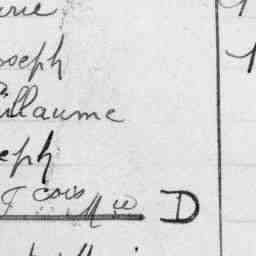 rie
oseph
illaume
eph
Fcois Mie D